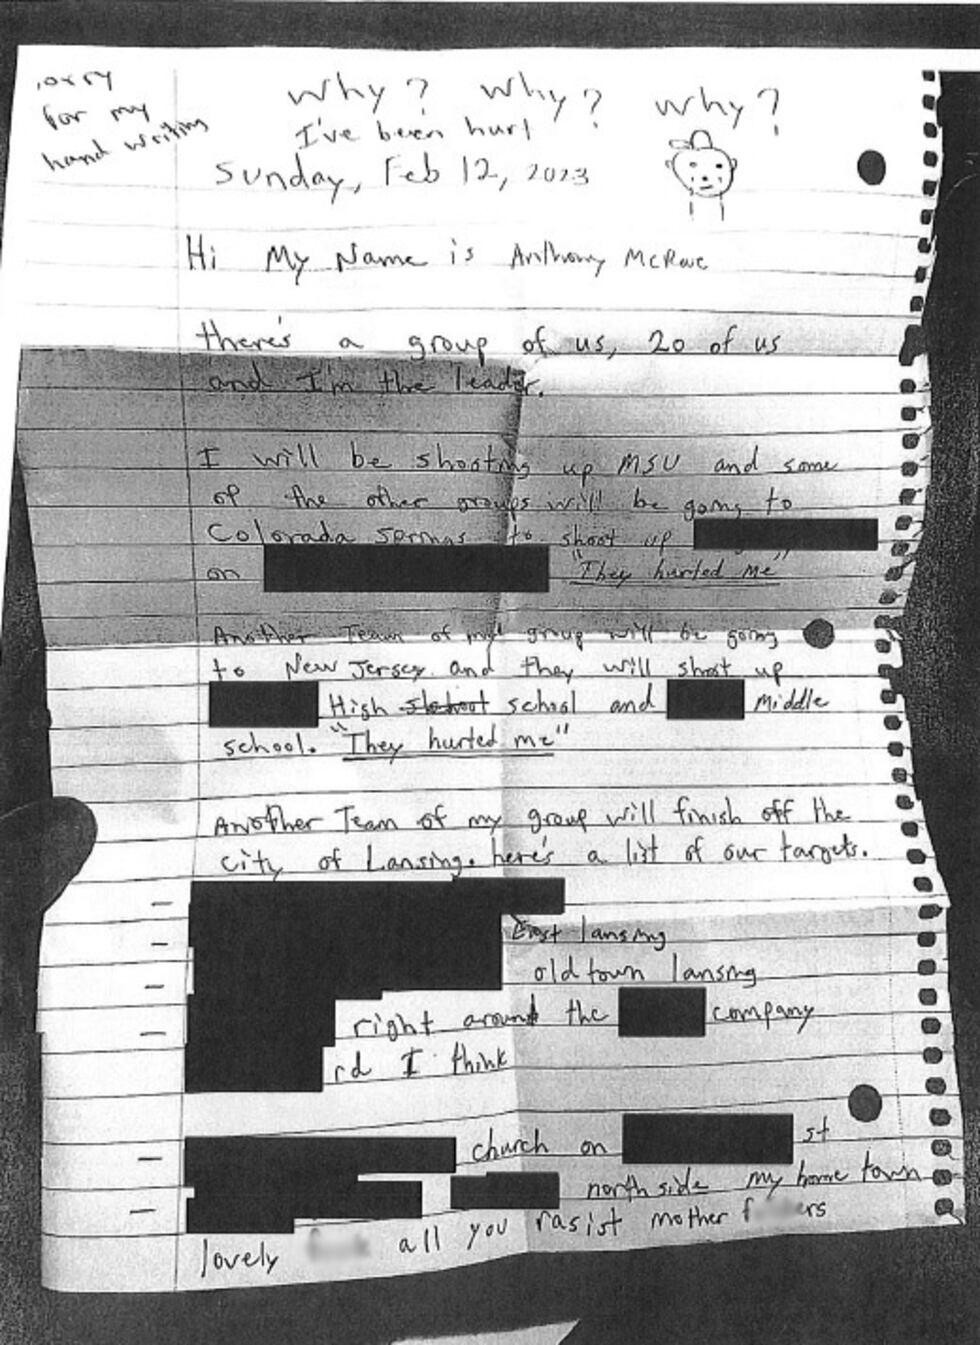 sorry
for my
hand writing
Why? Why? Why?
I've been hurt
Sunday, Feb 12, 2023
Hi My Name is Anthony McRae
there's a group of us, 20 of us
and I'm the leader.
I will be shooting up MSU and some
of the other groups will be going to
Colorada Springs to shoot up
on "They hurted me"
Another Team of my group will be going
to New Jersey and they will shoot up
High school and Middle
school. "They hurted me"
Another Team of my group will finish off the
city of Lansing. here's a list of our targets.
-
- East lansing
- old town lansing
- right around the company
rd I think
- church on st
- north side my home town
lovely all you rasist mother f ers